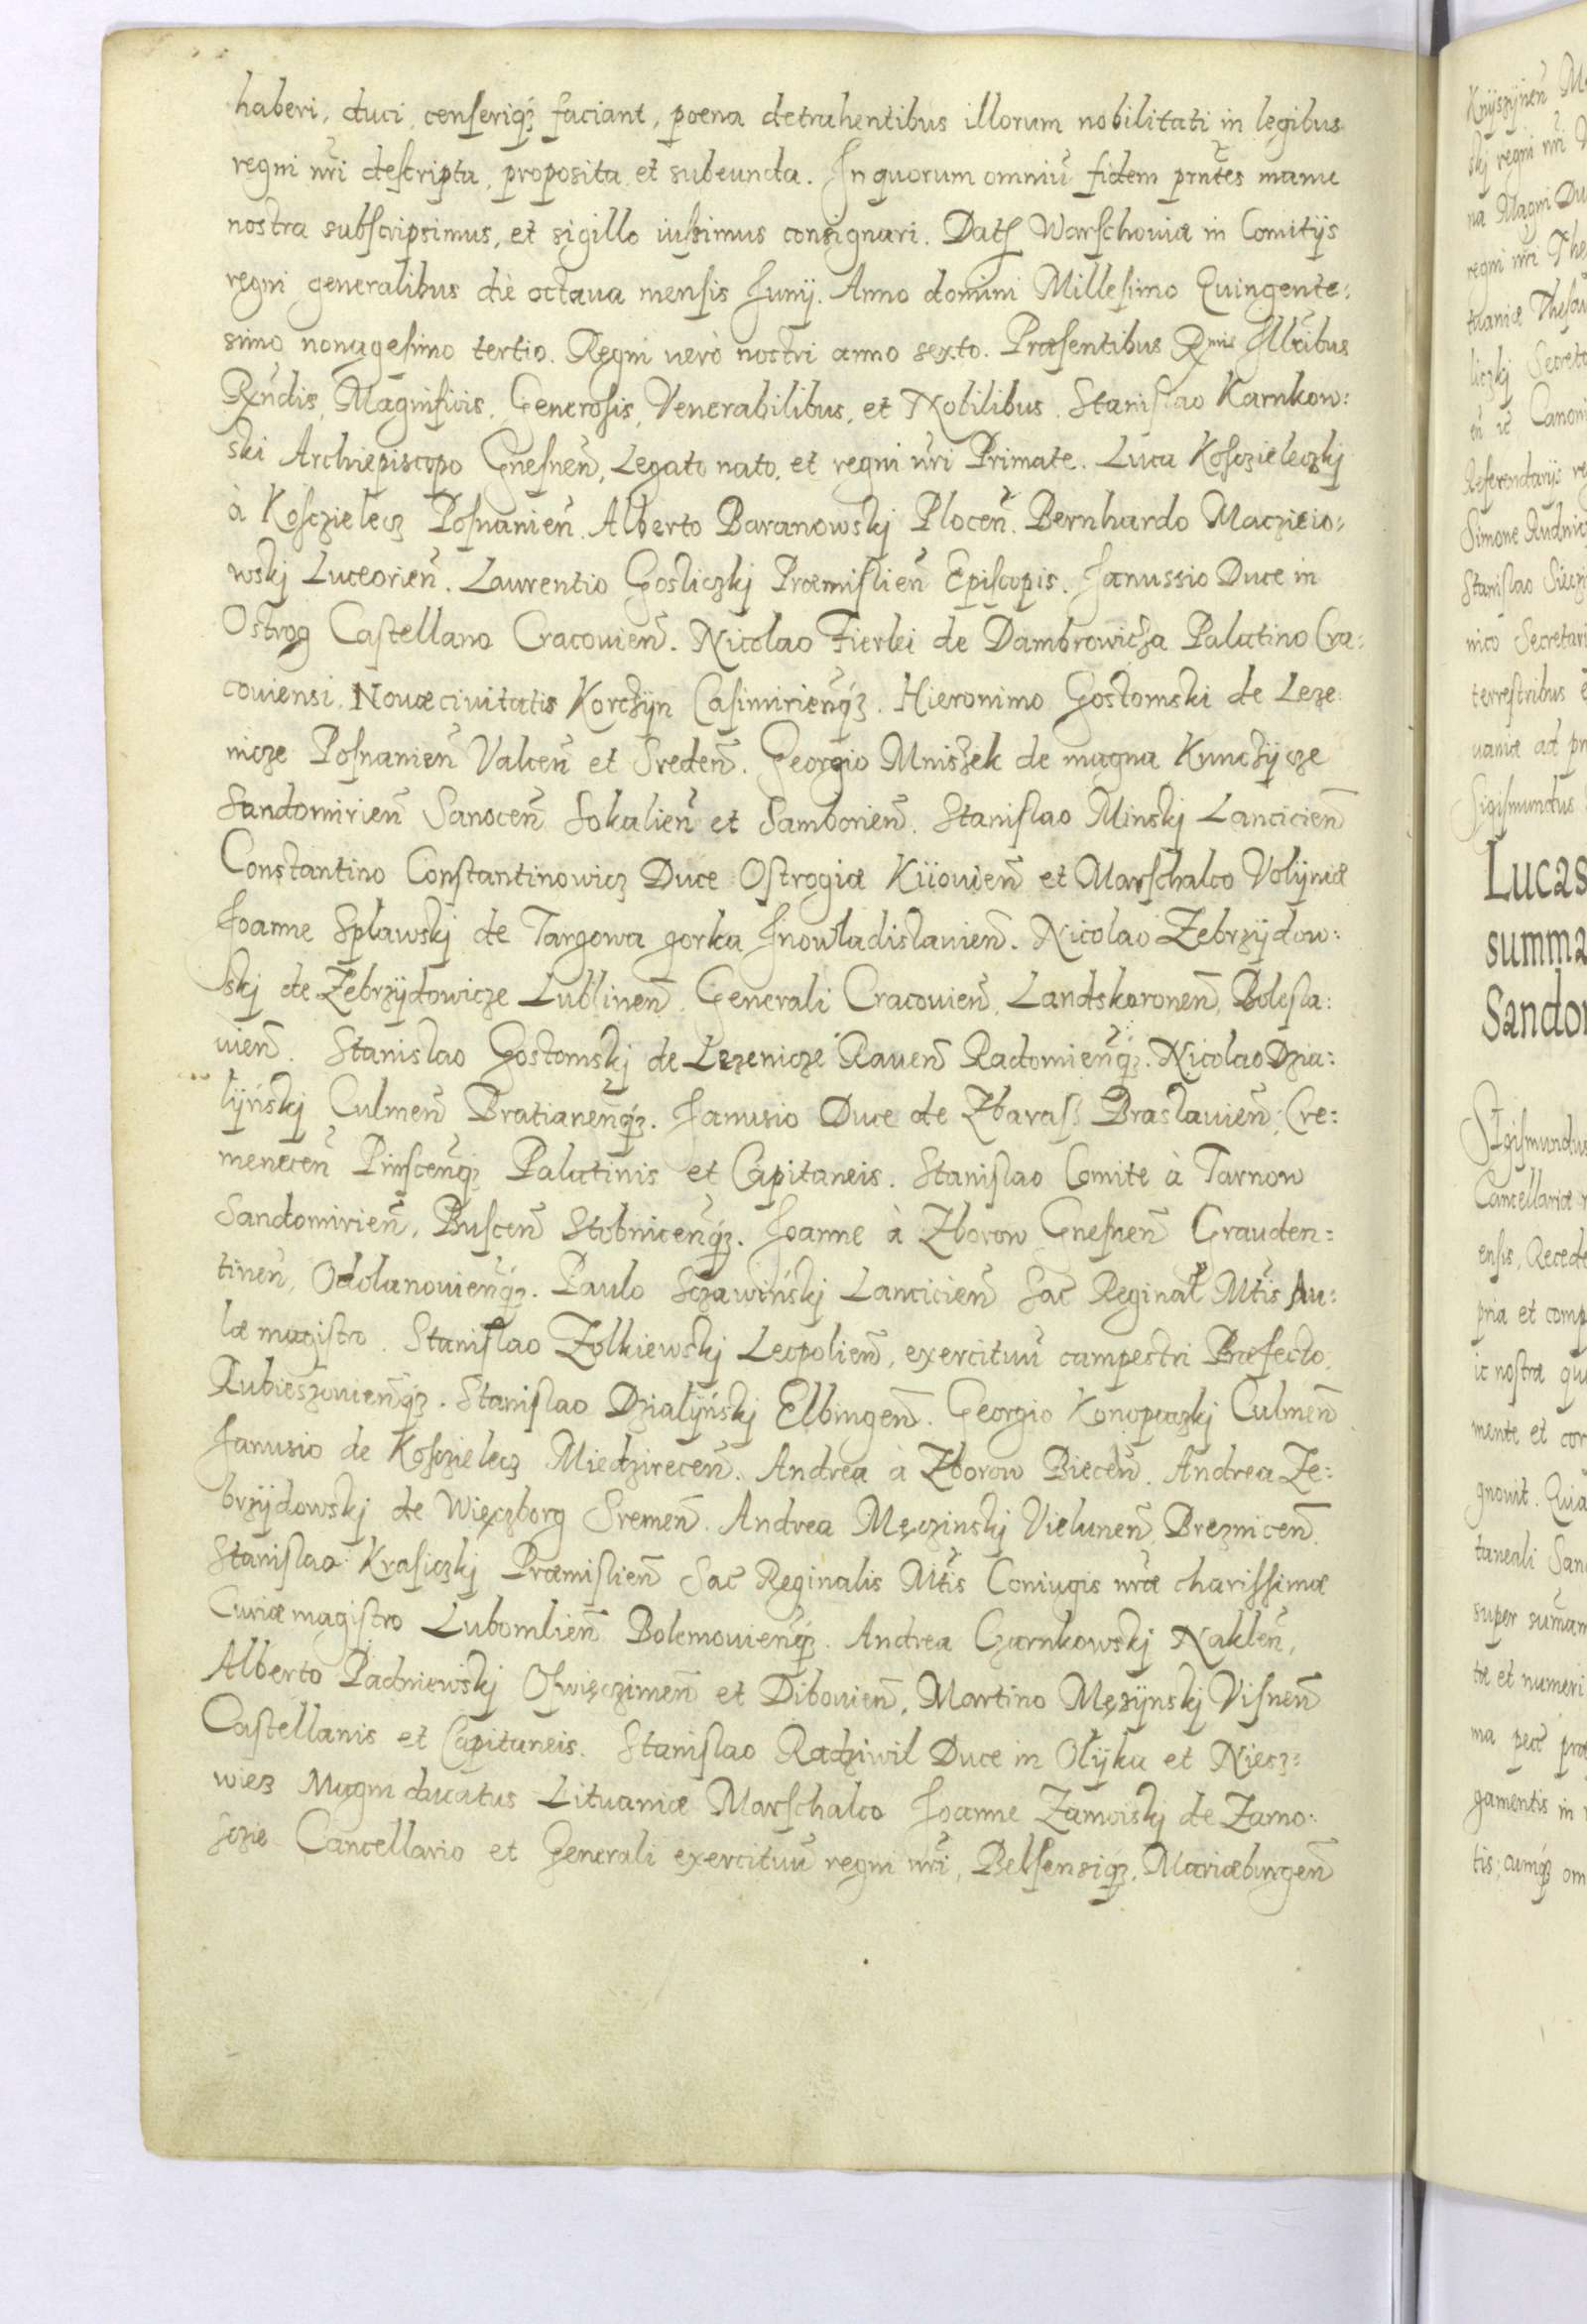 haberi, duci, censeriq́ʒ faciant, poena detrahentibus illorum nobilitati in legibus
regni nr̃i descripta, proposita et subeunda. In quorum omniũ fidem prñtes manu
nostra subscripsimus, et sigillo iussimus consignari. Datʃ Warschoviæ in Comitijs
regni generalibus die octaua mensis Junij. Anno domini Millesimo Quingente:
simo nonagesimo tertio. Regni uerò nostri anno sexto. Præsentibus Rmis Illr̃ibus
Rñdis, Magnificis, Generosis, Venerabilibus, et Nobilibus. Stanislao Karnkow:
ski Archiepiscopo Gnesneñ, Legato nato, et regni nr̃i Primate. Luca Kosczieleczkj
à Kosczielecz Posnanieñ. Alberto Baranowskj Ploceñ. Bernhardo Macziejo:
wskj Luceorieñ. Laurentio Gosliczkj Præmislieñ Episcopis. Janussio Duce in
Ostrog Castellano Cracovieñ. Nicolao Fierlei de Dambrowicza Palatino Cra:
couiensi, Nouæ civitatis Korczÿn Casimirieñq́ʒ. Hieronimo Gostomski de Leze:
nicze Posnanieñ Valceñ et Sredeñ. Georgio Mniszek de magna Kunczÿcze
Sandomirieñ Sanoceñ Sokalieñ et Samborieñ. Stanislao Minskj Lancicieñ
Constantino Constantinowicz Duce Ostrogiæ Kiiouieñ et Marschalco Volÿniæ
Joanne Splawskj de Targowa gorka Jnowladislauieñ. Nicolao Zebrzÿdow:
skj de Zebrzÿdowicze Lublineñ, Generali Cracouieñ, Landskoroneñ, Bolesla:
uieñ. Stanislao Gostomskj de Lezenicze Raueñ Radomieñq́ʒ. Nicolao Dzia:
lÿńskj Culmeñ Bratianeñq́ʒ. Janusio Duce de Zbaraß Braslauieñ, Cre:
meneceñ Pinsceñq́ʒ Palatinis et Capitaneis. Stanislao Comite à Tarnow
Sandomirieñ, Busceñ Stobniceñq́ʒ. Joanne à Zborow Gnesneñ Grauden:
tineñ, Odolanouieñq́ʒ. Paulo Sczawińskj Lancicieñ Sac̃ Reginal̃ Mt̃is Au:
læ magistro. Stanislao Zolkiewskj Leopolieñ, exercituũ campestri Præfecto,
Rubieszouieñq́ʒ. Stanislao Dzialÿńskj Elbingeñ. Georgio Konopaczkj Culmeñ
Janusio de Kosczielecz Miedzireceñ. Andrea à Zborow Bieceñ. Andrea Ze:
brzÿdowskj de Więczborg Sremeñ. Andrea Męczinskj Vieluneñ, Brezniceñ
Stanislao Krasiczkj Præmislieñ Sac̃ Reginalis Mt̃is Coniugis nr̃æ charissimæ
Curiæ magistro Lubomlieñ Bolemouieñq́ʒ. Andrea Czarnkowskj Nakleñ,
Alberto Padniewskj Oswięczimeñ et Dibouieñ, Martino Męzÿnskj Visneñ
Castellanis et Capitaneis. Stanislao Radziwil Duce in Olÿka et Niesz:
wiez Magni ducatus Lituaniæ Marschalco Joanne Zamoiskj de Zamo:
sczie Cancellario et Generali exercituũ regni nr̃i, Belsensiq́ʒ, Mariæburgeñ
Lucas
summa